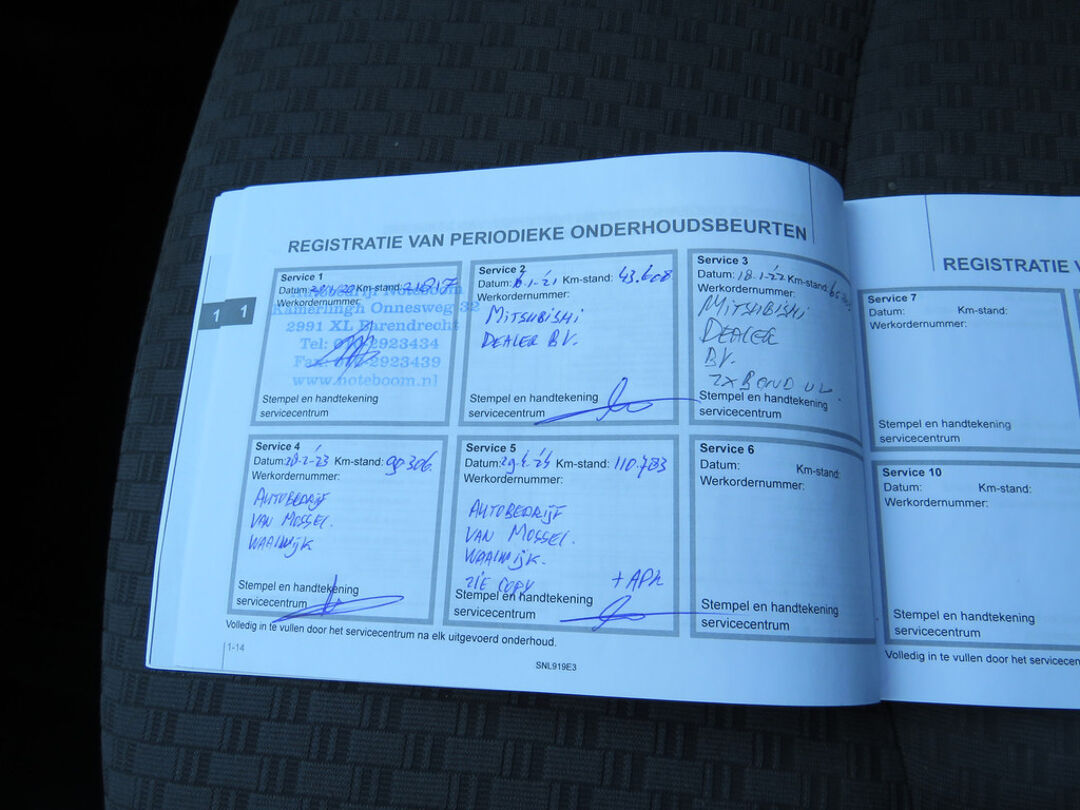 REGISTRATIE VAN PERIODIEKE ONDERHOUDSBEURTEN
Service 1
Datum: Km-stand: 21817
Werkordernummer:
Autobedrijf Noteboom
Kamerlingh Onnesweg 32
2991 XL Barendrecht
Tel: 2923434
Fax: 2923439
www.noteboom.nl
Stempel en handtekening
servicecentrum
Service 2
Datum: Km-stand: 43.608
Werkordernummer:
MITSUBISHI
DEALER BV.
Stempel en handtekening
servicecentrum
Service 3
Datum: 18-1-'22 Km-stand:
Werkordernummer:
MITSUBISHI
DEALER
BV.
Stempel en handtekening
servicecentrum
Service 4
Datum: Km-stand: 90306.
Werkordernummer:
AUTOBEDRIJF
VAN MOSSEL.
WAALWIJK
Stempel en handtekening
servicecentrum
Service 5
Datum: Km-stand: 110.783
Werkordernummer:
AUTOBEDRIJF
VAN MOSSEL.
WAALWIJK.
ZIE COPY + APK
Stempel en handtekening
servicecentrum
Service 6
Datum: Km-stand:
Werkordernummer:
Stempel en handtekening
servicecentrum
Volledig in te vullen door het servicecentrum na elk uitgevoerd onderhoud.
1-14
SNL919E3
1 1
REGISTRATIE
Service 7
Datum: Km-stand:
Werkordernummer:
Stempel en handtekening
servicecentrum
Service 10
Datum: Km-stand:
Werkordernummer:
Stempel en handtekening
servicecentrum
Volledig in te vullen door het servicecen